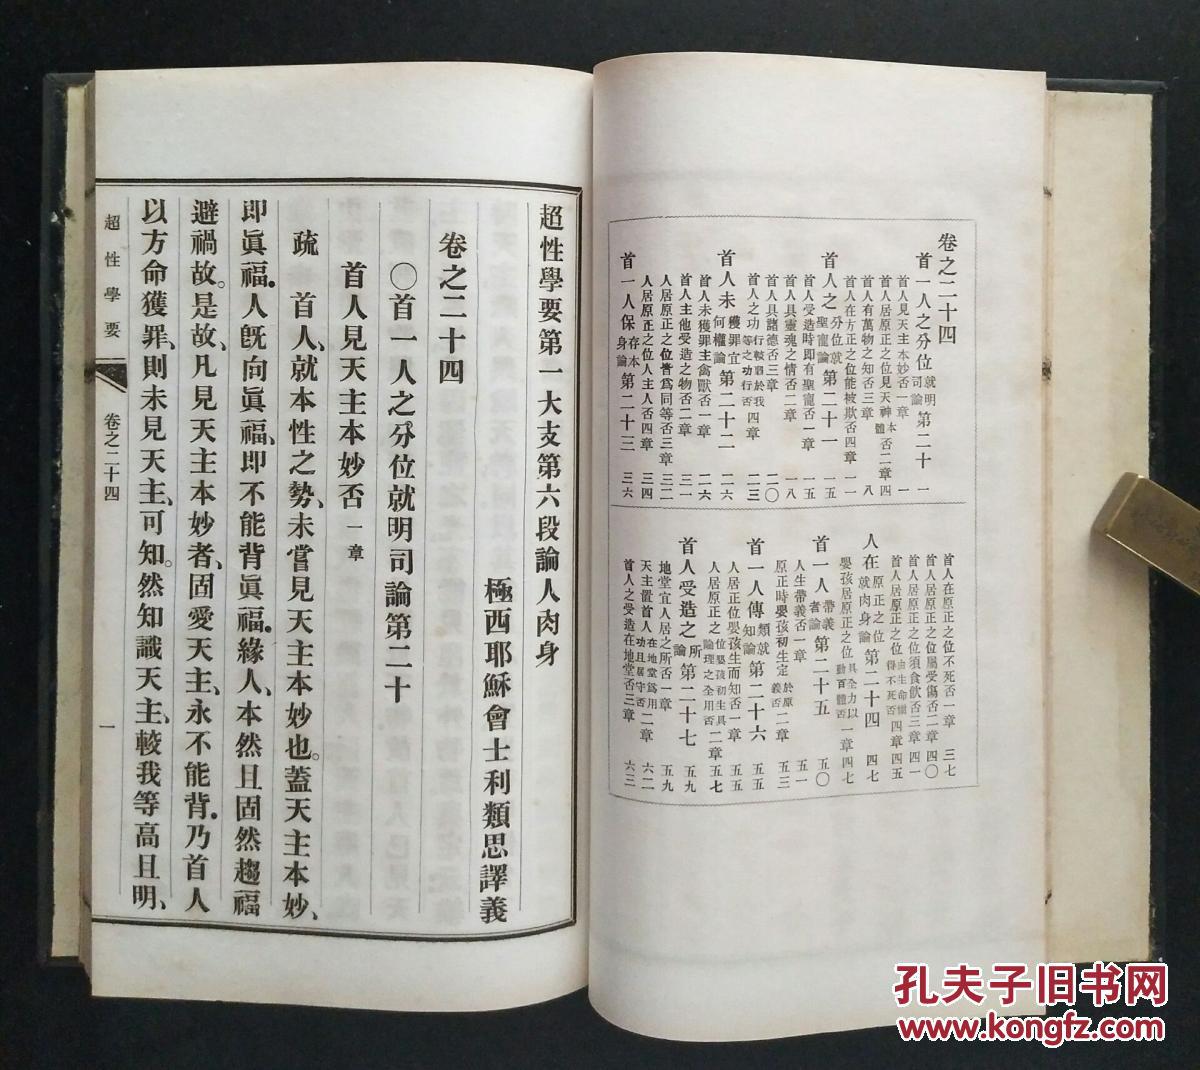 卷之二十四
首一人之分位就明司論第二十 一
首人見天主本妙否一章 一
首人居原正之位見天神本體否二章 四
首人有萬物之知否三章 八
首人在方正之位能被欺否四章 一一
首人之分位就聖寵論第二十一 一五
首人受造時即有聖寵否一章 一五
首人具靈魂之情否二章 一八
首人具諸德否三章 二〇
首人之功行較弱於我等之功行否四章 二三
首人未獲罪宜何權論第二十二 二六
首人未獲罪主禽獸否一章 二六
首人主他受造之物否二章 三一
人居原正之位皆爲同等否三章 三二
人居原正之位人主人否四章 三四
首一人保存本身論第二十三 三六
首人在原正之位不死否一章 三七
首人居原正之位屬受傷否二章 四〇
首人居原正之位須食飲否三章 四一
首人居原正之位由生命樹得不死否四章 四五
人在原正之位就肉身論第二十四 四七
嬰孩居原正之位具全力以動百體否一章 四七
首一人帶義者論第二十五 五〇
人生帶義否一章 五一
原正時嬰孩初生定於原義否二章 五三
首一人傳類就知論第二十六 五五
人居正位嬰孩生而知否一章 五五
人居原正之位嬰孩初生具論理之全用否二章 五七
首人受造之所論第二十七 五九
地堂宜人居之所否一章 五九
天主置首人在地堂爲用功且居守否二章 六二
首人之受造在地堂否三章 六三
超性學要第一大支第六段論人肉身
極西耶穌會士利類思譯義
卷之二十四
〇首一人之分位就明司論第二十
首人見天主本妙否一章
疏 首人、就本性之勢、未嘗見天主本妙也。蓋天主本妙、
即眞福。人旣向眞福、即不能背眞福。緣人、本然且固然趨福
避禍故。是故、凡見天主本妙者、固愛天主、永不能背。乃首人
以方命獲罪、則未見天主、可知。然知識天主、較我等高且明、
超性學要
卷之二十四
一
孔夫子旧书网
www.kongfz.com